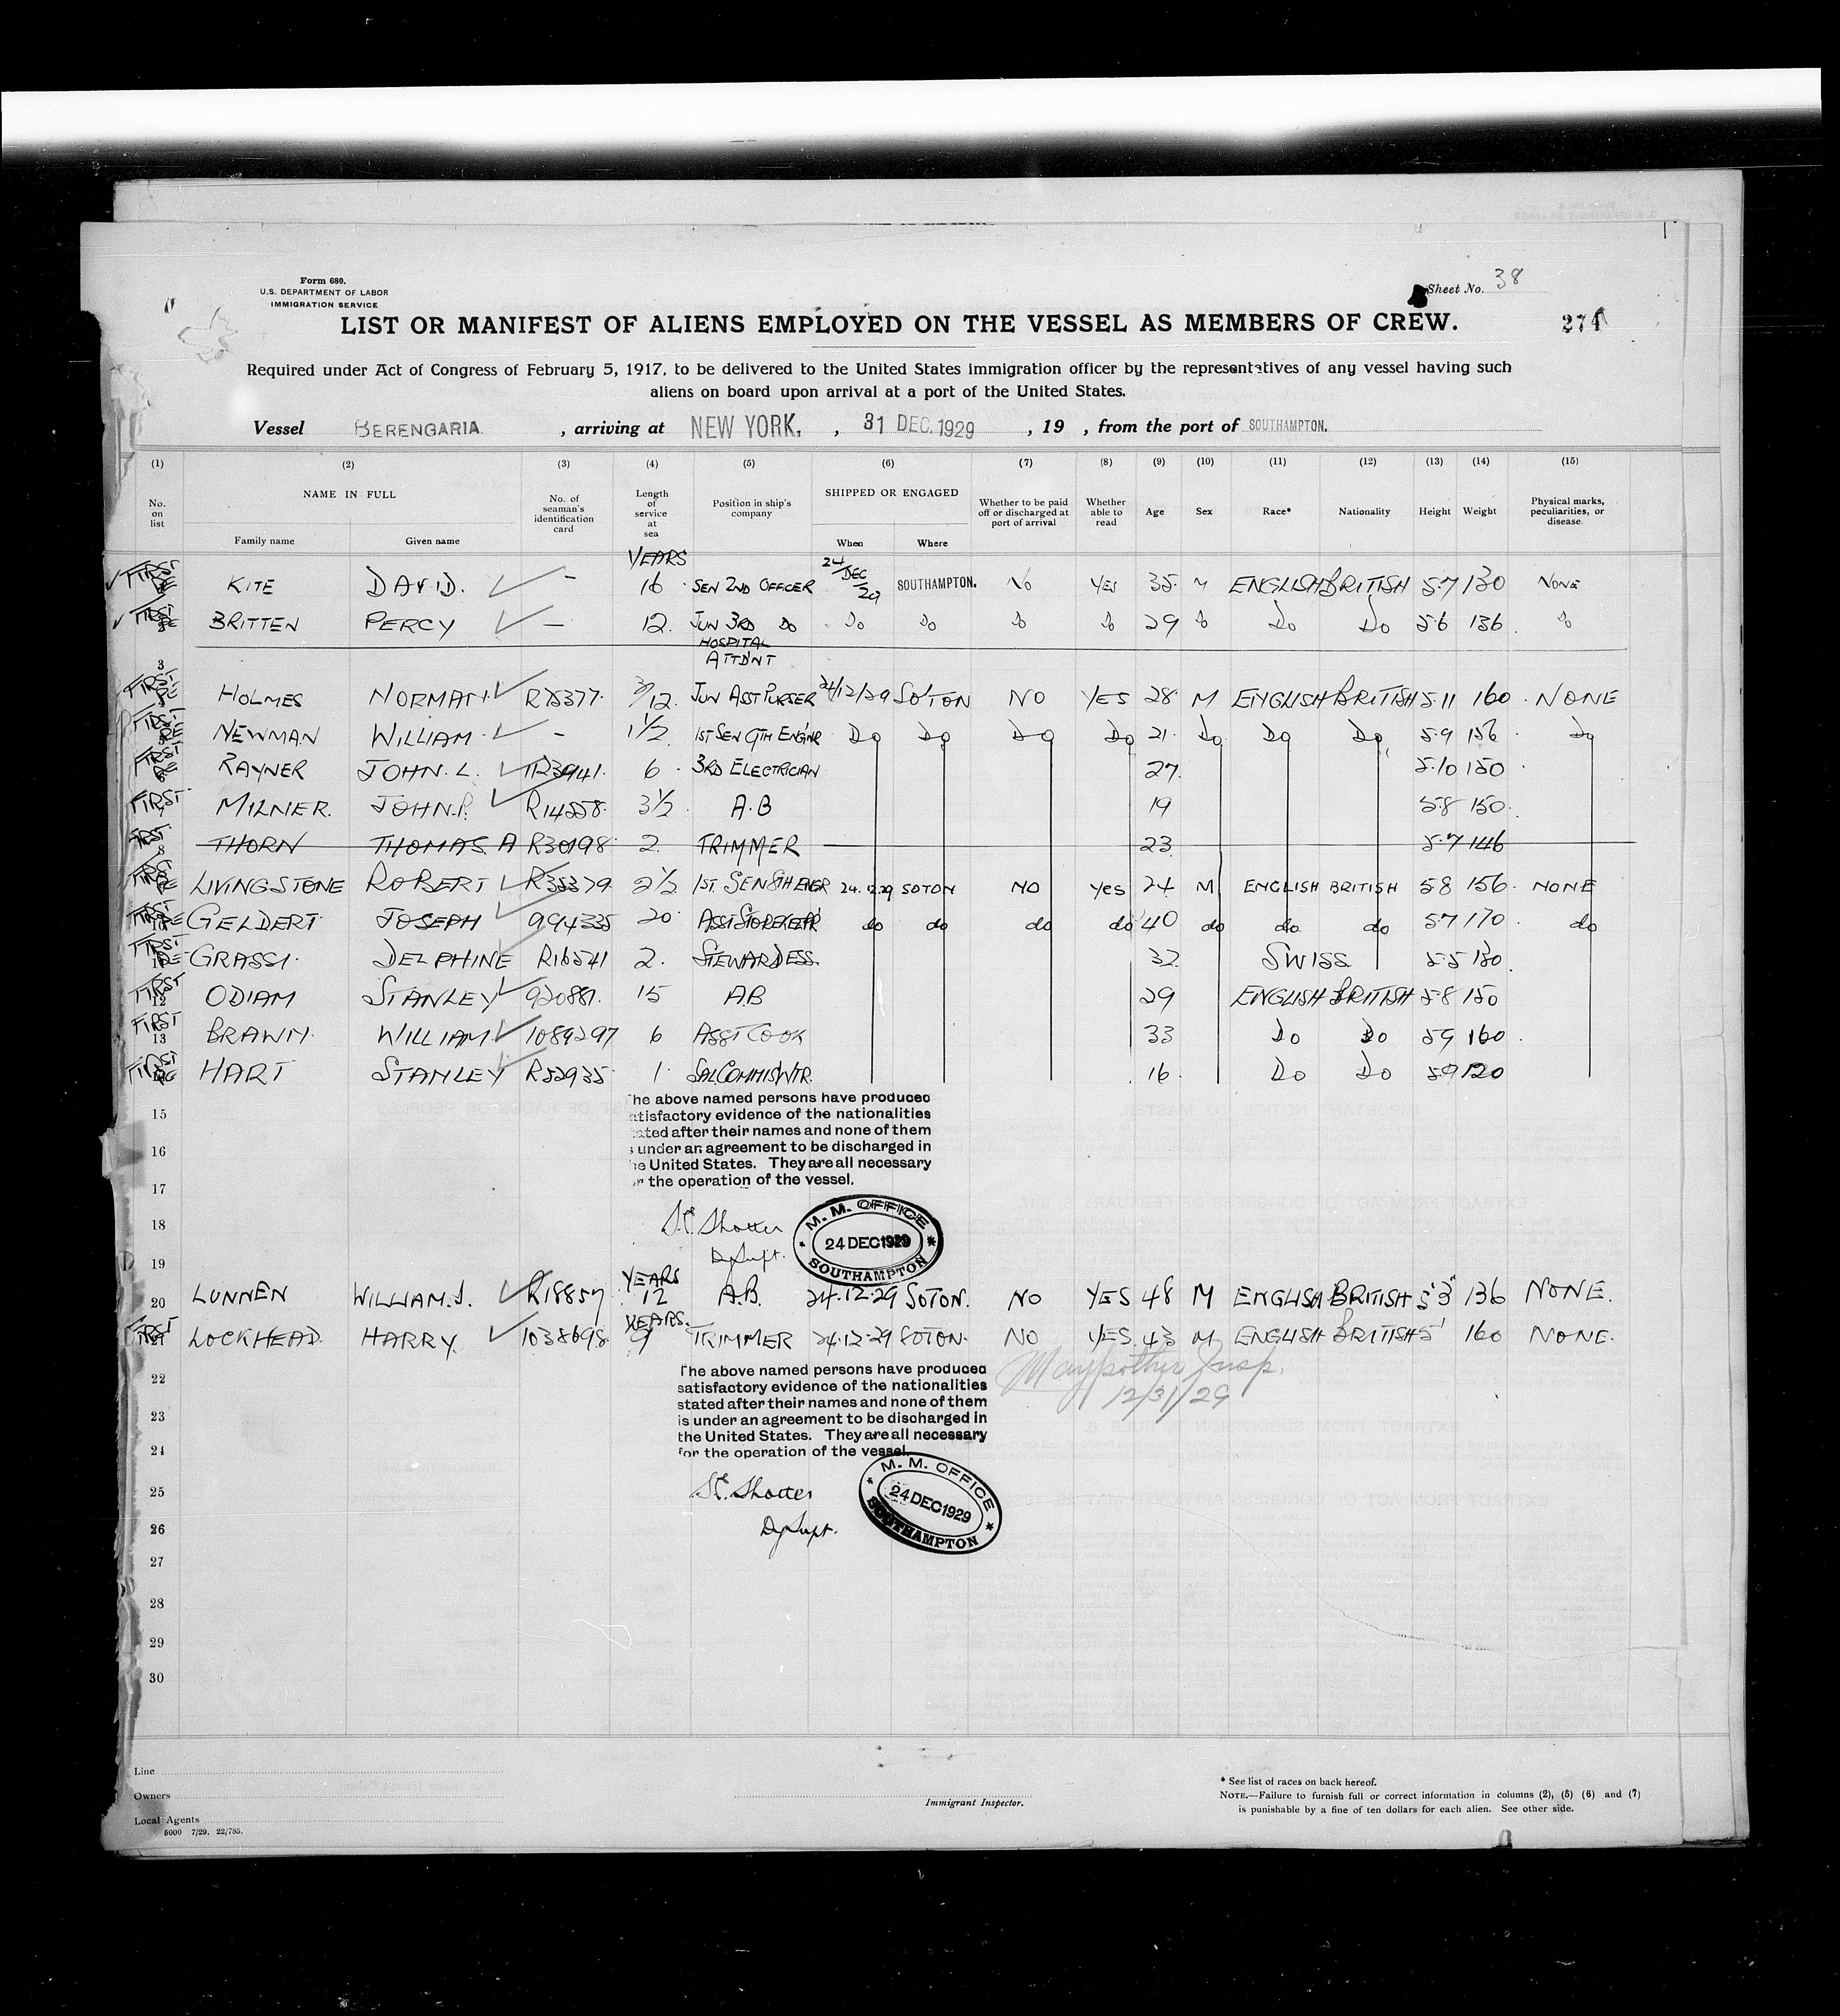 Form 680.
U.S. DEPARTMENT OF LABOR
IMMIGRATION SERVICE
Sheet No. 38
LIST OR MANIFEST OF ALIENS EMPLOYED ON THE VESSEL AS MEMBERS OF CREW.
274
Required under Act of Congress of February 5, 1917, to be delivered to the United States immigration officer by the representatives of any vessel having such
aliens on board upon arrival at a port of the United States.
Vessel BERENGARIA , arriving at NEW YORK. , 31 DEC. 1929 , 19 , from the port of SOUTHAMPTON.
(1) (2) (3) (4) (5) (6) (7) (8) (9) (10) (11) (12) (13) (14) (15)
No. on list NAME IN FULL Family name Given name No. of seaman's identification card Length of service at sea Position in ship's company SHIPPED OR ENGAGED When Where Whether to be paid off or discharged at port of arrival Whether able to read Age Sex Race* Nationality Height Weight Physical marks, peculiarities, or disease
YEARS
FIRST KITE DAVID. – 16 SEN 2ND OFFICER 24/DEC/29 SOUTHAMPTON. NO YES 35 M ENGLISH BRITISH 5·7 130 NONE
FIRST BRITTEN PERCY – 12. JUN 3RD DO Do Do Do Do 29 Do Do Do 5·6 136 Do
3 HOSPITAL ATTDNT
FIRST HOLMES NORMAN R75377 3/12. JUN ASST PURSER 24/12/29 SO'TON NO YES 28 M ENGLISH BRITISH 5·11 160 NONE
FIRST NEWMAN WILLIAM – 1½ 1ST SEN 9TH ENGNR Do Do Do Do 21 Do Do Do 5·9 156 Do
FIRST RAYNER JOHN. L. R23941. 6 3RD ELECTRICIAN 27. 5·10 150
FIRST MILNER. JOHN.P. R14558. 3½ A.B 19 5·8 150.
FIRST 8 THORN THOMAS A R30198 2 TRIMMER 23 5·7 146
FIRST LIVINGSTONE ROBERT R35379 2½ 1ST SEN 8TH ENGR 24.12.29 SOTON NO YES 24 M ENGLISH BRITISH 5·8 156 NONE
FIRST GELDERT JOSEPH 994335 20 ASST STOREKEEPR do do do do 40 do do do 5·7 170 do
FIRST GRASSI. DELPHINE R16541 2. STEWARDESS. 32 SWISS 5·5 180.
FIRST 12 ODIAM STANLEY 920881. 15 A.B 29 ENGLISH BRITISH 5·8 150
FIRST 13 BRAWN. WILLIAM 1089297 6 ASST COOK 33 Do Do 5·9 160
FIRST HART STANLEY R52935 1 SAL.COMMIS WTR. 16 Do Do 5·9 120
15
16
17
18
19
he above named persons have produced
atisfactory evidence of the nationalities
ated after their names and none of them
s under an agreement to be discharged in
he United States. They are all necessary
r the operation of the vessel.
Shotter
Dy Supt.
M. M. OFFICE
24 DEC 1929
SOUTHAMPTON
20 LUNNEN WILLIAM.J. R18857 YEARS 12 A.B. 24.12.29 SOTON. NO YES 48 M ENGLISH BRITISH 5'3" 136 NONE.
FIRST LOCKHEAD HARRY 1038698 YEARS. 9 TRIMMER 24.12.29 SOTON. NO YES 43 M ENGLISH BRITISH 5' 160 NONE.
22
23
24
25
26
27
28
29
30
The above named persons have produced
satisfactory evidence of the nationalities
stated after their names and none of them
is under an agreement to be discharged in
the United States. They are all necessary
for the operation of the vessel.
Insp.
12/31/29
Shotter
Dy Supt.
M. M. OFFICE
24 DEC 1929
SOUTHAMPTON
Line
Owners
Local Agents
5000 7/29. 22/785.
Immigrant Inspector.
* See list of races on back hereof.
NOTE.—Failure to furnish full or correct information in columns (2), (5) (6) and (7)
is punishable by a fine of ten dollars for each alien. See other side.